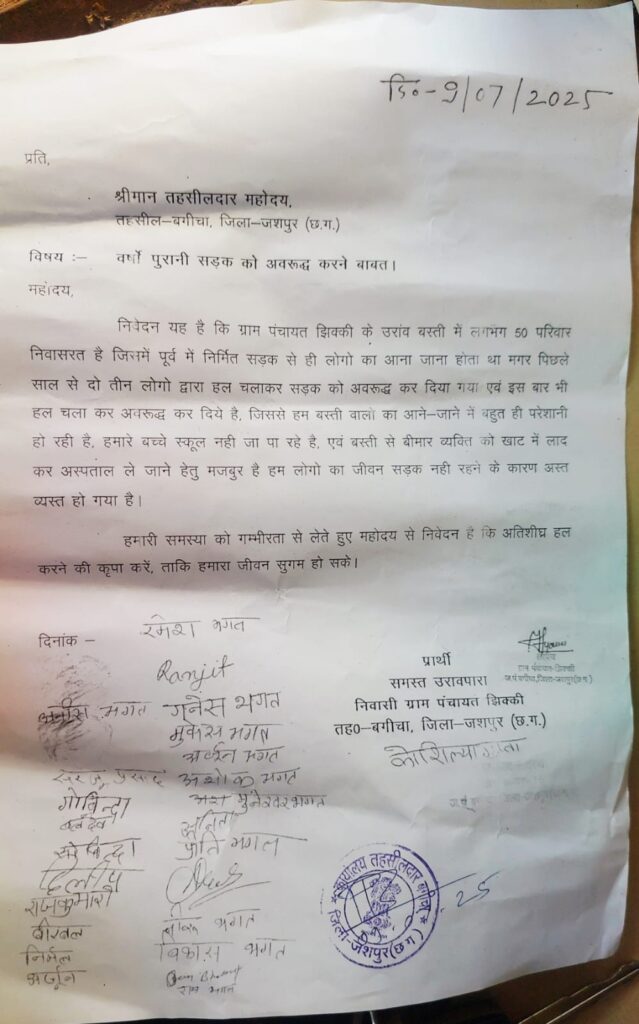 दि०-9/07/2025
प्रति,
श्रीमान तहसीलदार महोदय,
तहसील–बगीचा, जिला–जशपुर (छ.ग.)
विषय :– वर्षो पुरानी सड़क को अवरूद्ध करने बाबत।
महोदय,
निवेदन यह है कि ग्राम पंचायत झिक्की के उरांव बस्ती में लगभग 50 परिवार
निवासरत है जिसमें पूर्व में निर्मित सड़क से ही लोगो का आना जाना होता था मगर पिछले
साल से दो तीन लोगो द्वारा हल चलाकर सड़क को अवरूद्ध कर दिया गया एवं इस बार भी
हल चला कर अवरूद्ध कर दिये है, जिससे हम बस्ती वालो का आने–जाने में बहुत ही परेशानी
हो रही है, हमारे बच्चे स्कूल नही जा पा रहे है, एवं बस्ती से बीमार व्यक्ति को खाट में लाद
कर अस्पताल ले जाने हेतु मजबुर है हम लोगो का जीवन सड़क नही रहने के कारण अस्त
व्यस्त हो गया है।
हमारी समस्या को गम्भीरता से लेते हुए महोदय से निवेदन है कि अतिशीघ्र हल
करने की कृपा करें, ताकि हमारा जीवन सुगम हो सके।
दिनांक –
रमेश भगत
Ranjit
गनेस भगत
मुकेस भगत
अशोक भगत
गोविन्दा
सुनिता
प्रति भगत
दिलीप
राजकुमारी
बीरबल
विकास भगत
निर्मल
अर्जुन
राम भगत
सचिव
ग्राम पंचायत-झिक्की
ज.पं.बगीचा,जिला-जशपुर(छ.ग.)
प्रार्थी
समस्त उरावपारा
निवासी ग्राम पंचायत झिक्की
तह0–बगीचा, जिला–जशपुर (छ.ग.)
कौशिल्या गुप्ता
कार्यालय तहसीलदार बगीचा
जिला-जशपुर(छ.ग.)